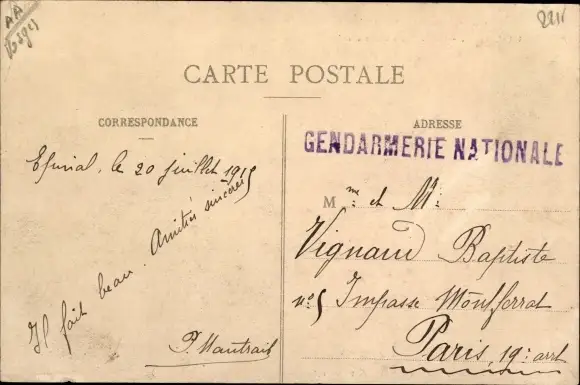 AA
Vosges
CARTE POSTALE
CORRESPONDANCE
Epinal, le 20 juillet 1915
Il fait beau. Amitiés sincères
P. Mautrait
ADRESSE
GENDARMERIE NATIONALE
M me: et M:
Vignaud Baptiste
n:5 Impasse Montferrat
Paris, 19: arrt